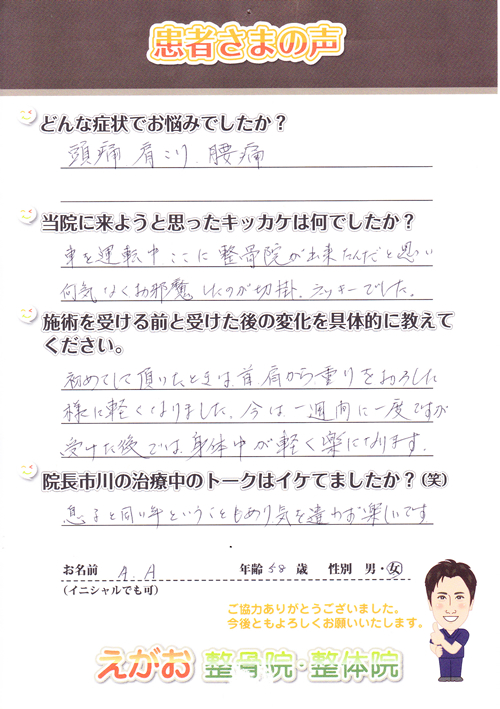 患者さまの声
どんな症状でお悩みでしたか？
頭痛 肩こり、腰痛
当院に来ようと思ったキッカケは何でしたか？
車を運転中 ここに 整骨院が出来たんだと思い
何気なくお邪魔したのが切掛、ラッキーでした。
施術を受ける前と受けた後の変化を具体的に教えて
ください。
初めてして頂いたときは、首、肩から重りをおろした
様に軽くなりました、今は一週間に一度ですが
受けた後では、身体中が軽く楽になります。
院長市川の治療中のトークはイケてましたか？（笑）
息子と同い年ということもあり気を遣わず楽しいです
お名前 A.A 年齢 58 歳 性別 男・女
（イニシャルでも可）
ご協力ありがとうございました。
今後ともよろしくお願いいたします。
えがお 整骨院・整体院